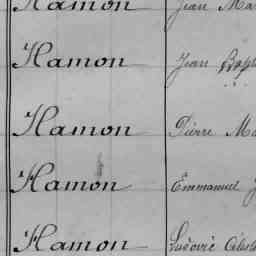 Hamon Jean Ma
Hamon Jean Bapt
Hamon Pierre Ma
Hamon Emmanuel J
Hamon Ludovic Célest